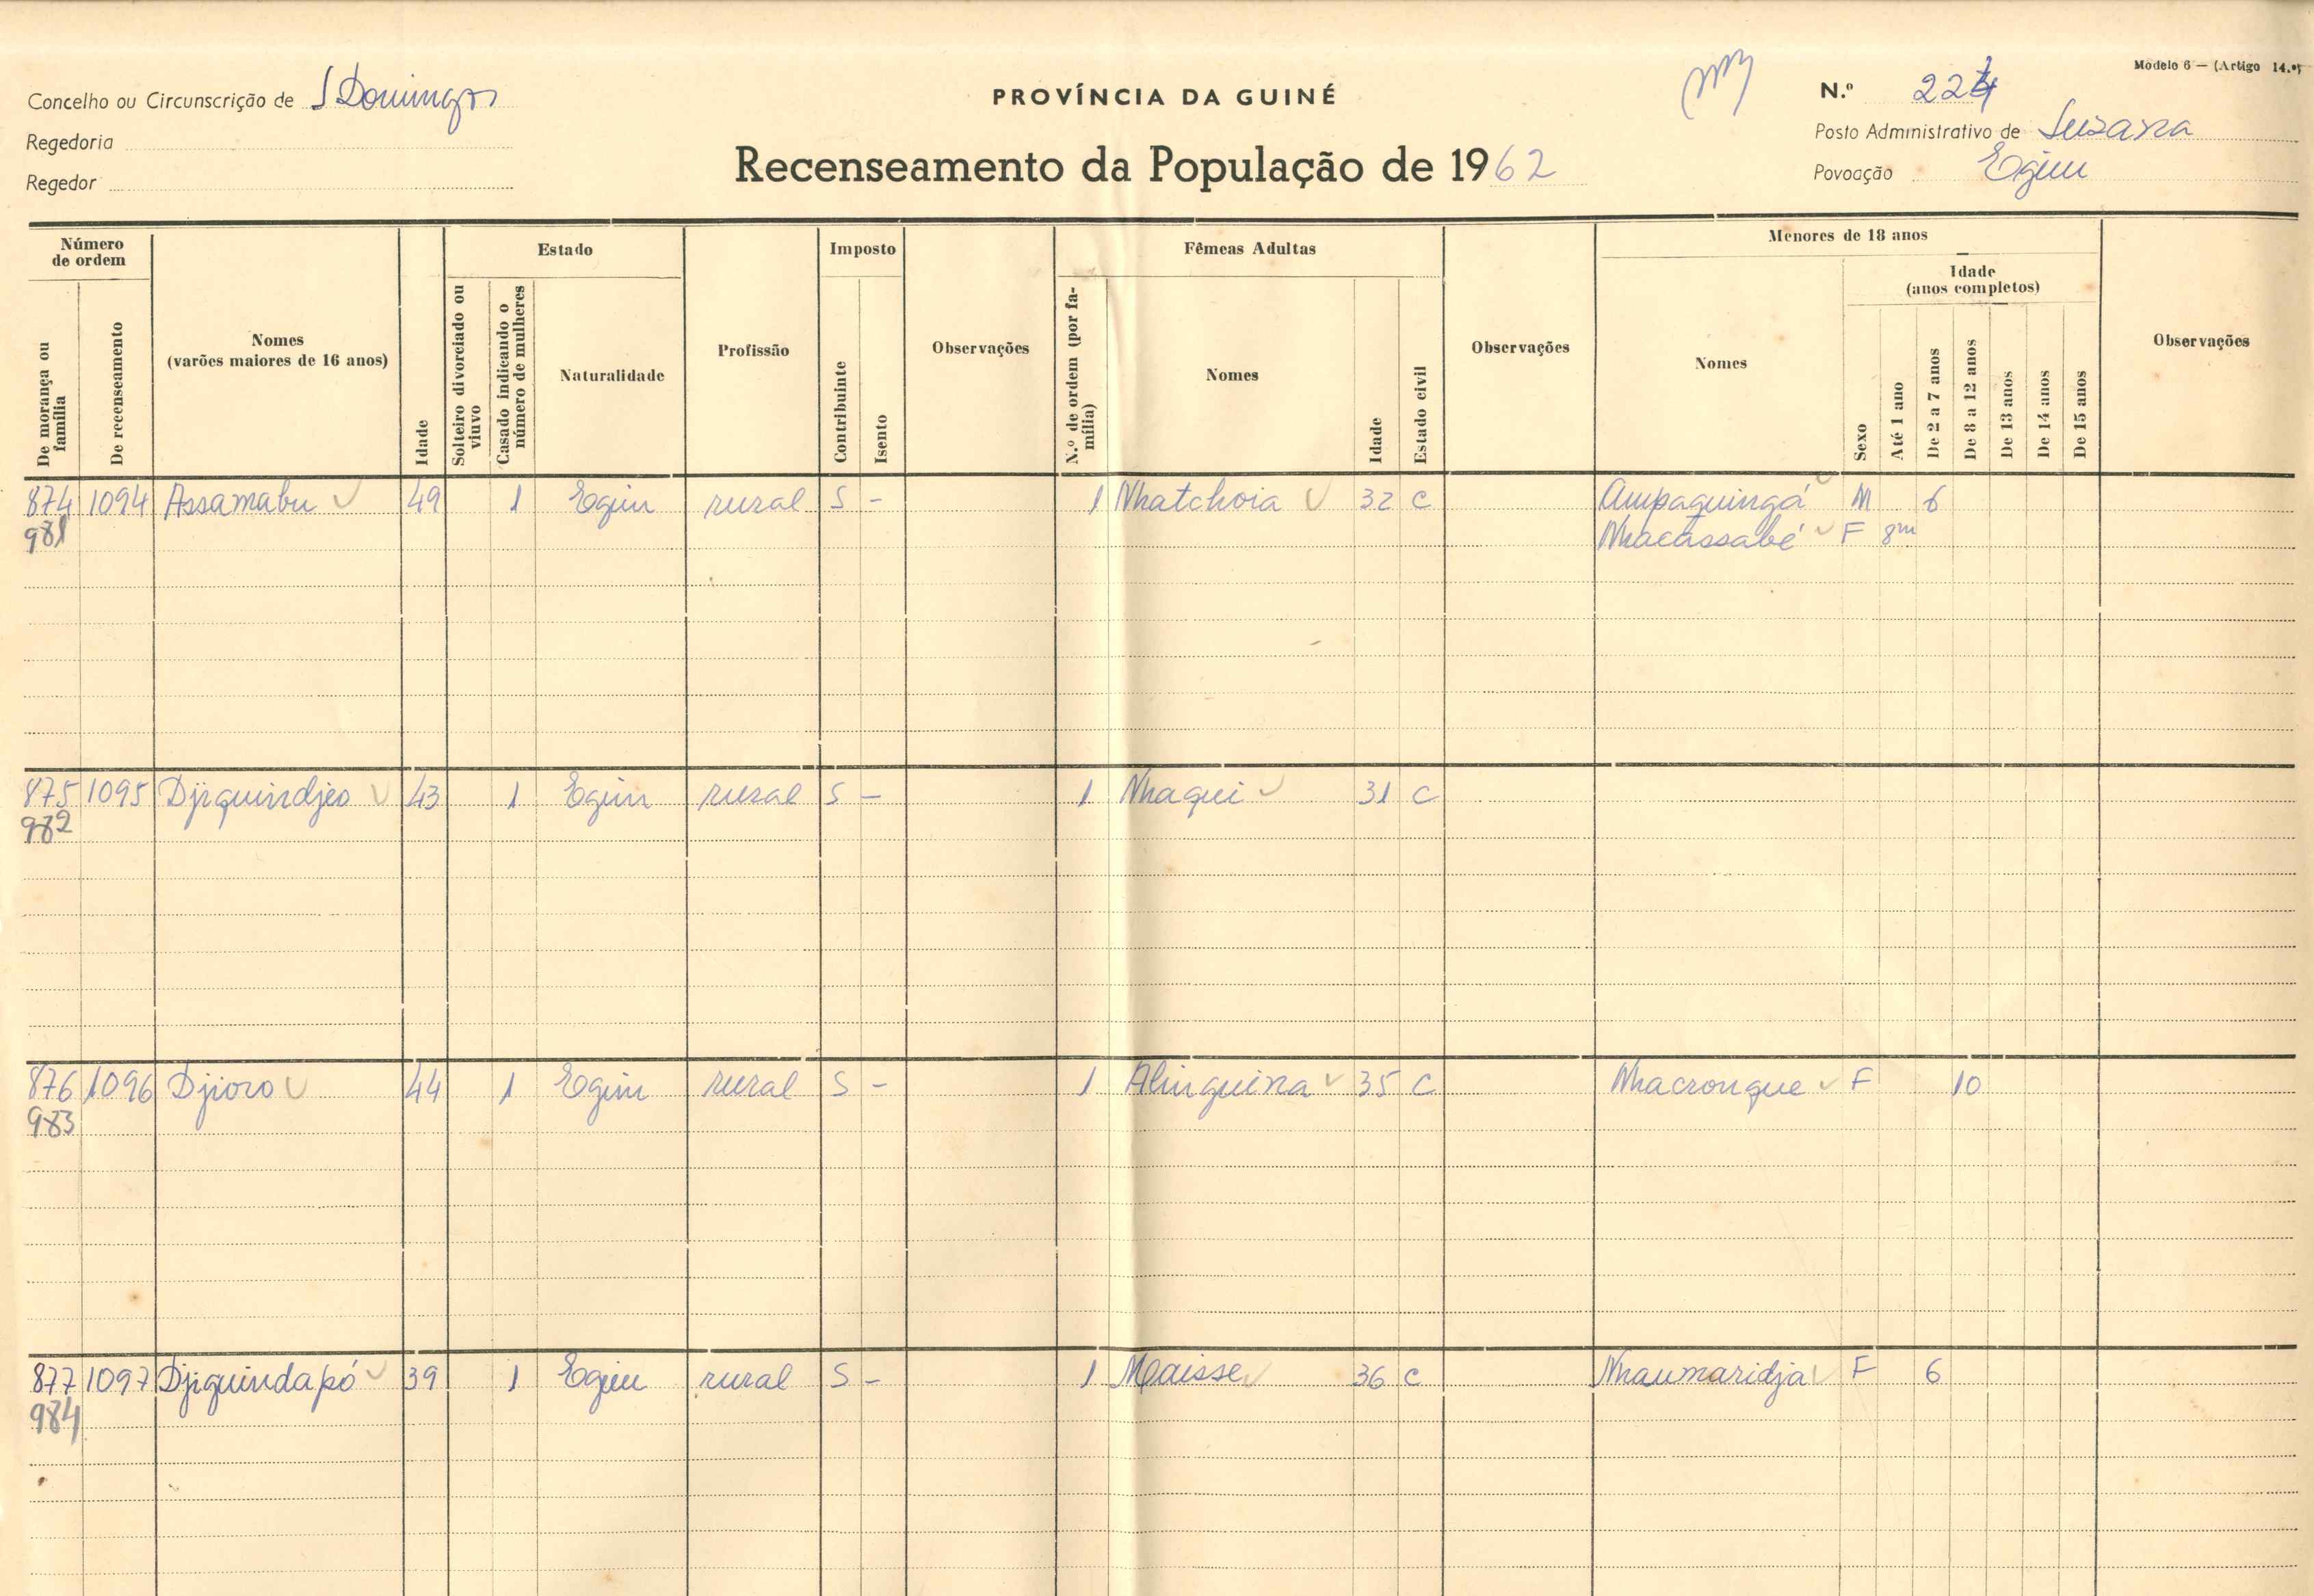 Modelo 6 — (Artigo 14.º)
Concelho ou Circunscrição de S Domingos
PROVÍNCIA DA GUINÉ
N.º 224
Regedoria
Posto Administrativo de Susana
Regedor
Recenseamento da População de 1962
Povoação Egim
Número de ordem
De morança ou família
De recenseamento
Nomes
(varões maiores de 16 anos)
Idade
Estado
Solteiro divorciado ou viuvo
Casado indicando o número de mulheres
Naturalidade
Profissão
Imposto
Contribuinte
Isento
Observações
Fêmeas Adultas
N.º de ordem (por família)
Nomes
Idade
Estado civil
Observações
Menores de 18 anos
Nomes
Idade
(anos completos)
Sexo
Até 1 ano
De 2 a 7 anos
De 8 a 12 anos
De 13 anos
De 14 anos
De 15 anos
Observações
874 1094 Assamabu 49 1 Egim rural S - 1 Nhatchoia 32 C Ampaguingá M 6
981 Nhacassabé F 8m
875 1095 Djiguindjeo 43 1 Egim rural S - 1 Nhaqui 31 C
982
876 1096 Djioro 44 1 Egim rural S - 1 Alinguina 35 C Nhacronque F 10
983
877 1097 Djiguindapó 39 1 Egim rural S - 1 Maisse 36 C Nhaumaridja F 6
984